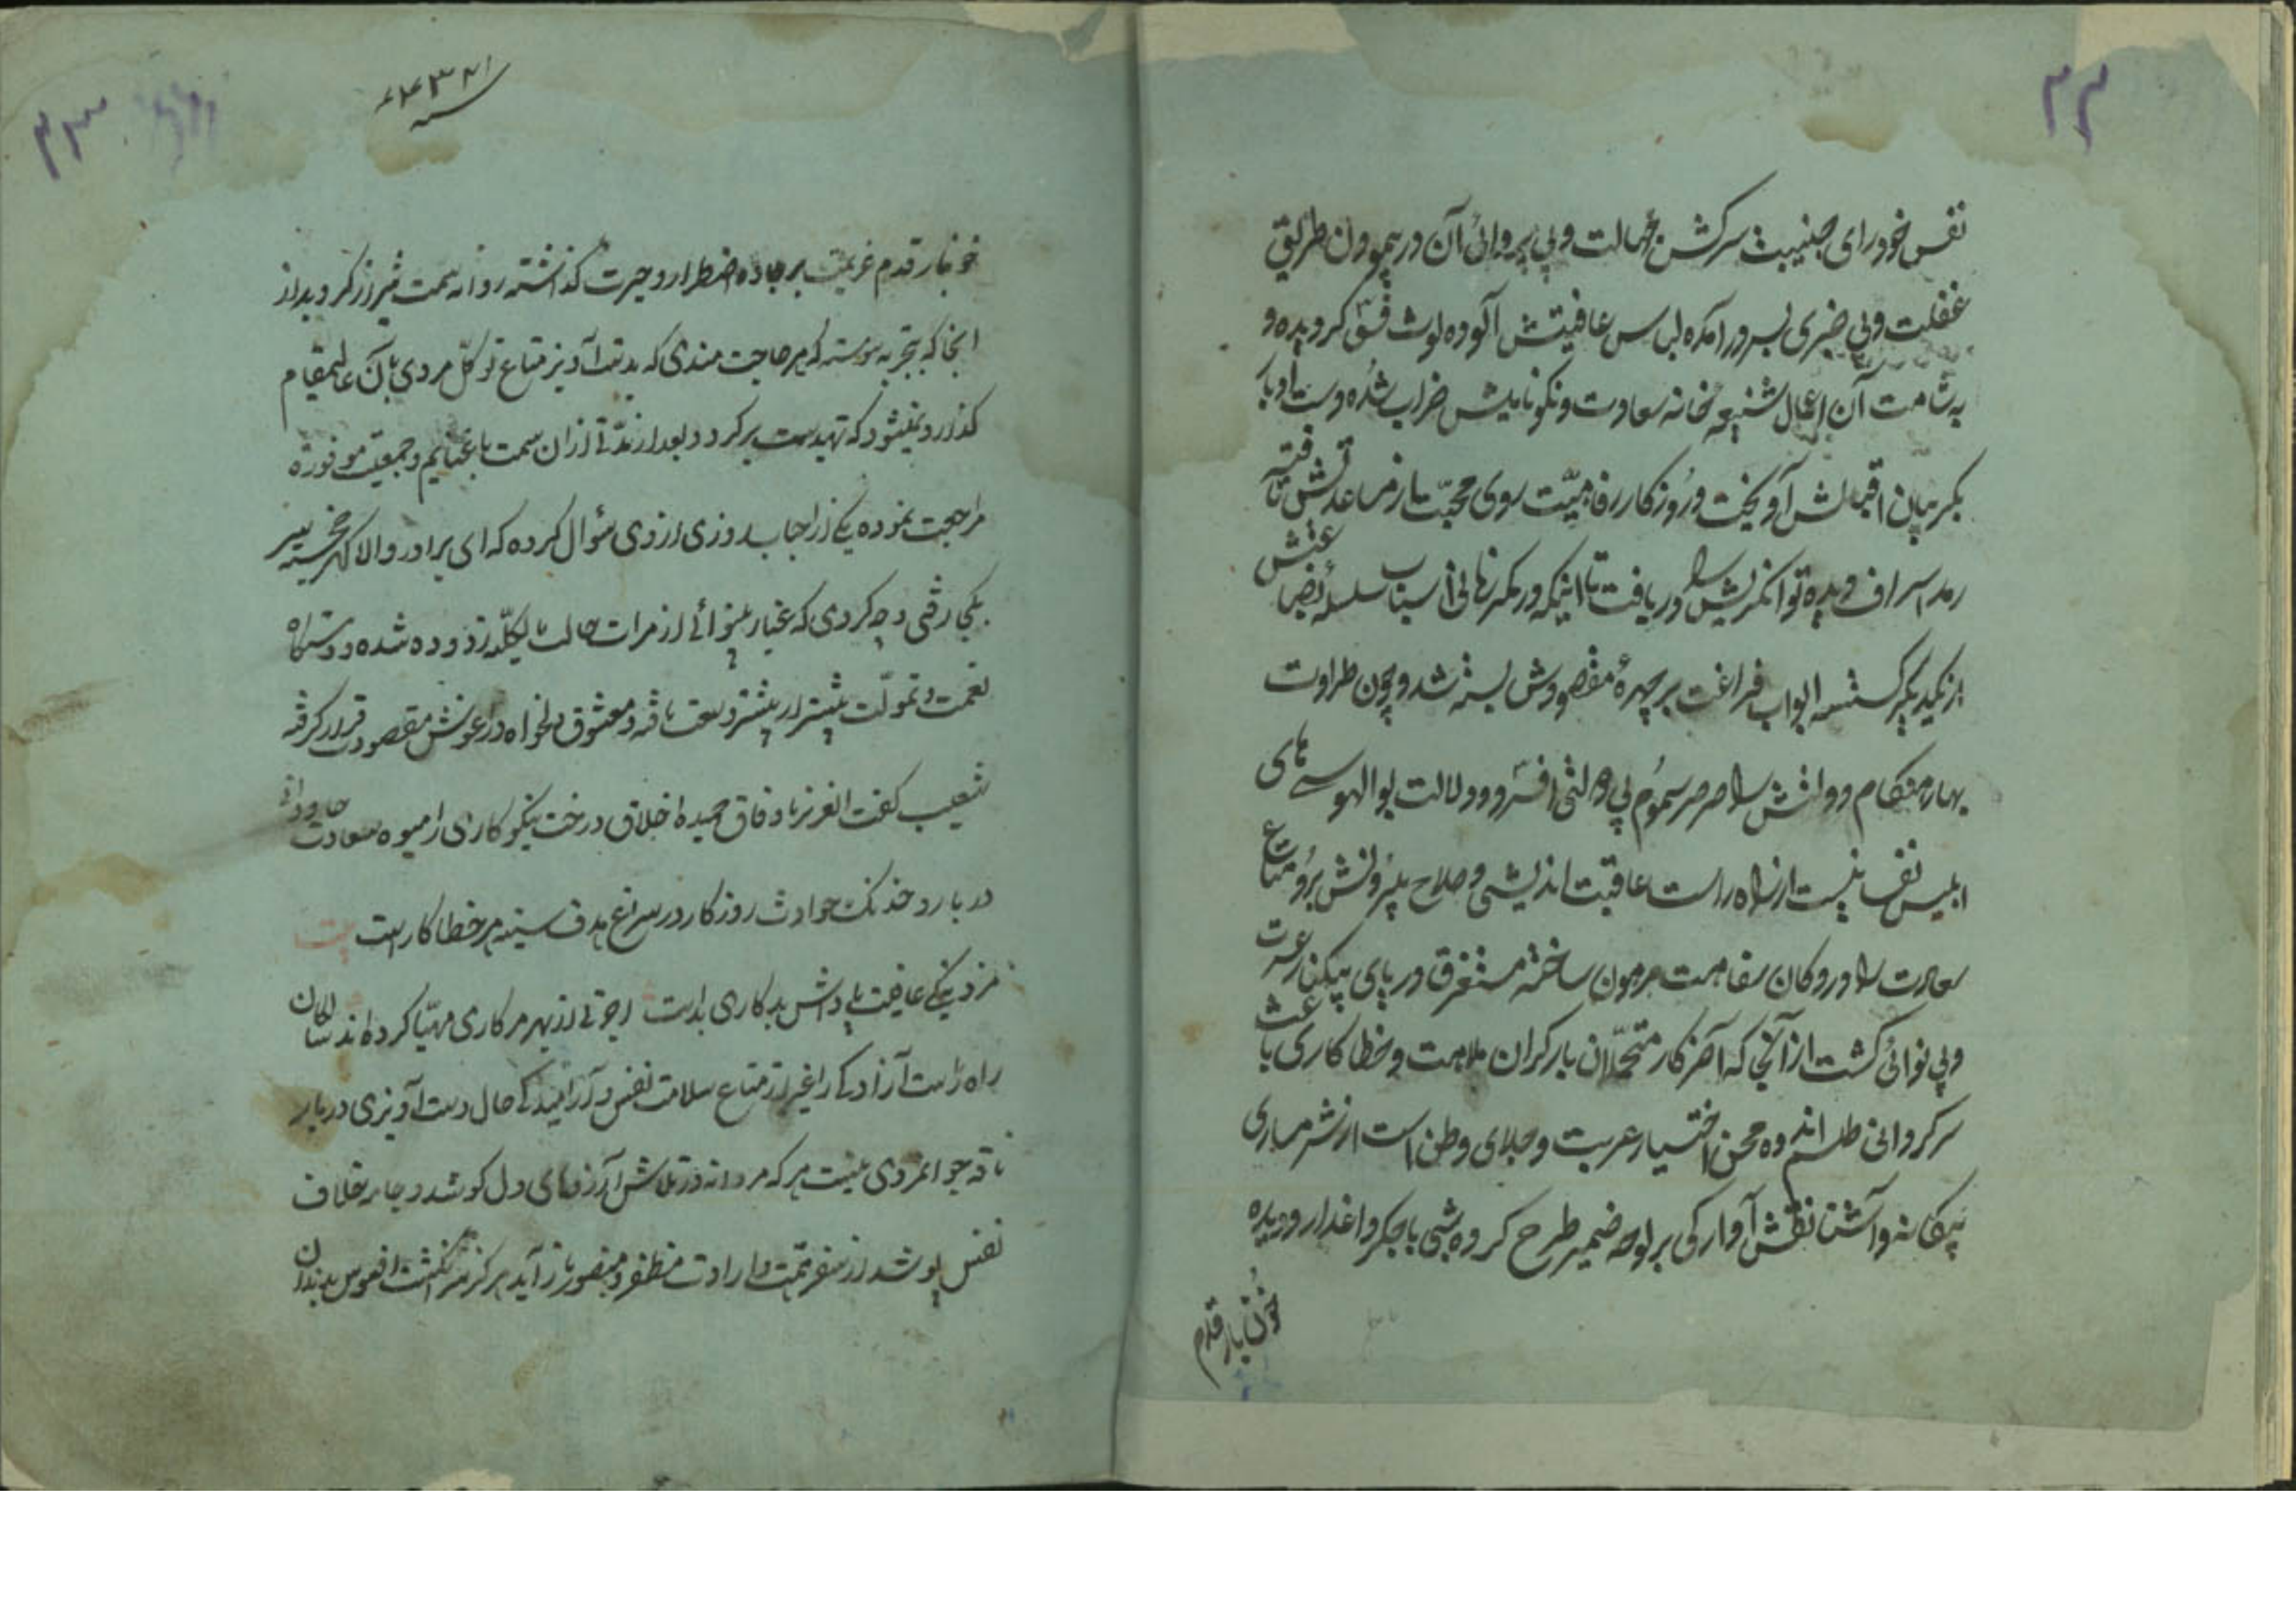 ۴۲
نفس خودرای جنیبت سرکش جهالت و بی پروائی آن در پیمودن طریق
غفلت و بی خبری بسرور آمده لباس عافیتش آلوده لوث فسق کردیده و
به شامت آن اعمال شنیعه خانه سعادت و نکونامیش خراب شده دست ادبار
بکریبان اقبالش آویخت و روزکار رفاهیت روی محبت از مساعدتش تافته
اسراف دیده توانکریش را دریافت تا اینکه در مکرهای سلسله بضاعتش
از یکدیکر کسسته ابواب فراغت بر چهره مقصودش بسته شد و چون طراوت
بهار هنکام دولتش را صرصر سموم بی دولتی افسرد و دلالت بوالهوسی های
ابلیس نفس از راه راست عاقبت اندیشی و صلاح بیرونش برد متاع
سعادت را در دکان سفاهت مرهون ساخته مستغرق دریای بیکنار عسرت
و بی نوائی کشت از آنجا که آخر کار متحملان بار کران ملامت و خطاکاری باعث
سرکردانی طلسم اندوه و محن اختیار غربت و جلای وطن است از شرمساری
بیکانه و آشنا نقش آوارکی بر لوحه ضمیر طرح کرده شبی با جکر داغدار و دیده
خون بار قدم
۴۳
خونبار قدم عزیمت بر جاده اضطرار و حیرت کذاشته روانه سمت شیراز کردید از
انجا که بتجربه پیوسته که هر حاجت مندی که بدست آویز متاع توکل مردی بآن عالیمقام
کذارد نمیشود که تهیدست برکردد بعد از مدتی از آن سمت با غنایم و جمعیت موفوره
مراجعت نموده یکی از احباب روزی از وی سؤال کرده که ای برادر والا کهر خجسته سیر
بکجا رفتی و چه کردی که غبار بینوائی از مرات حالت بالکل زدوده شده و دستکاه
نعمت و تمولت بیشتر از بیشتر وسعت یافته و معشوق دلخواه در آغوش مقصودت قرار کرفته
شعیب کفت ای عزیز با وفاق حمیده اخلاق درخت نیکوکاری را میوه سعادت جاودانی
در بار و خدنک حوادث روزکار در سراغ هدف سینه هر خطا کار است بیت
مزد نیکی عافیت پاداش بدکاری بداست اجرتی از بهر هر کاری مهیا کرده اند
راه راست آزادکی را غیر از متاع سلامت نفس و آرامیدکی حال دست آویزی در بار
ناقه جوانمردی نیست هر که مردانه در تلاش آرزوهای دل کوشد و جامه خلاف
نفس پوشد از سفر همت و ارادت مظفر و منصور باز آید هرکز سر انکشت افسوس بدندان